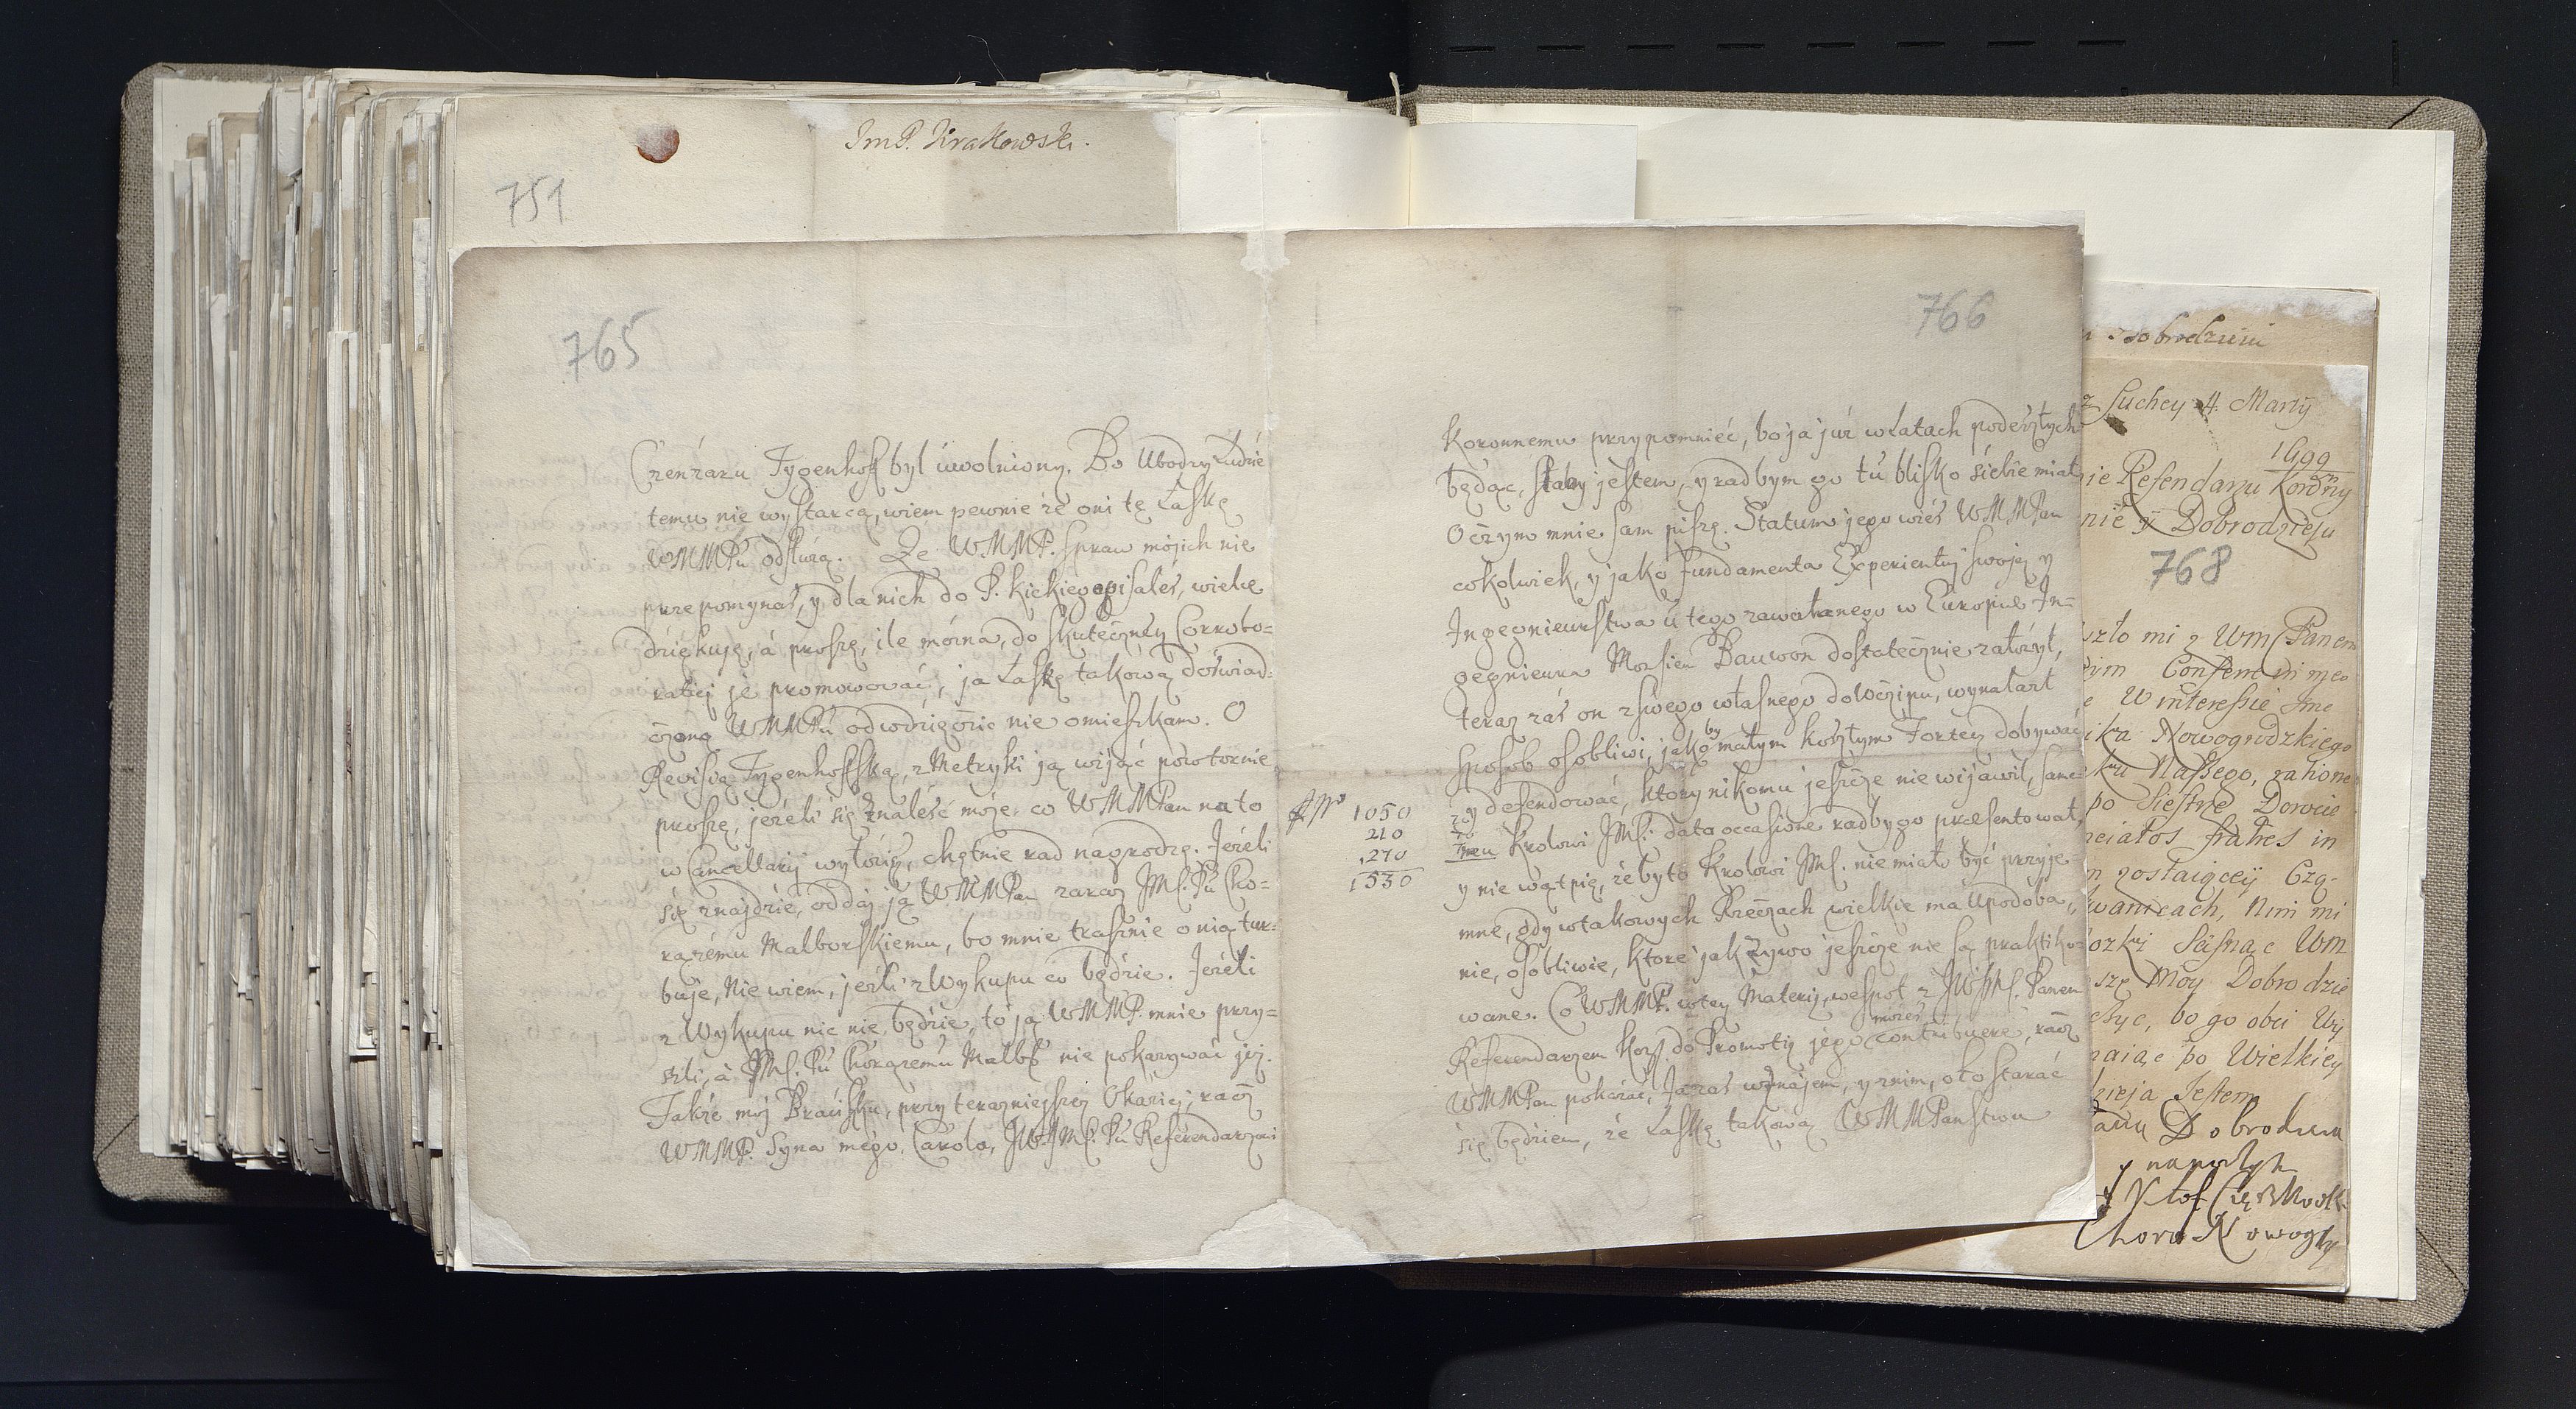 ImP. Krakowski.
751
765
Czenżaru Tygenhoff był uwolniony. Bo Ubodzy Ludzie
temu nie wystarcą, wiem pewnie że oni tę Łaskę
WMMPu odsłużą. Że WMMP. spraw mojich nie
przepomynasz, y dla nich do P. Kickiego pisałeś, wielce
dźiękuję, á proszę, ile można, do skuteczney Corrobo=
ratiej je promowować, ja Łaskę takową doświad=
czoną WMMPu odwdzięczic nie omieszkam. O
Revisią Tygenhoffską, z Metryki ją wijąć powtornie
proszę, jeżeli się znaleść może, co WMMPan na to
w Cancellarij wyłożisz, chętnie rad nagrodzę. Jeżeli
się znajdzie, oddaj ją WMMPan zaraz JMś. Pu Cho=
rążemu Malborskiemu, bo mnie o nią tur=
buje, Nie wiem, jeśli z Wykupu co będzie. Jeżeli
z Wykupu nic nie będzie, to ją WMMP. mnie przy=
szli, à JMś. Pu Chorążemu Malb. nie pokazywać jej.
Także moj Braciszku, przy terazniejszej Okaziej, racz
WMMP. Syna mego, Carola, JWJMś. Pu Referendarzowi
766
Koronnemu przypomnieć, bo ja już w Latach podeszłych
będąc, słaby jestem, y rad bym go tu blisko siebie miał
O czym mnie sam piszę. Statum jego wiesz WMMPan
cokolwiek, y jako Fundamenta Experientij swojej y
Ingegnieurstwa u tego zawołanego w Europie In=
gegnieura Monsieu Bauwon dostatecznie założył,
teraz zaś on z swego własnego dowcipu, wynalazł
sposob osobliwi, jako by małym kosztym Fortez dobywać
y defendować, ktory nikomu jeszcze nie wijawił, same=
mu Krolowi JMś: data occasione rad by go praesentował,
y nie wątpię, że by to Krolowi JMś. nie miało być przyje=
mne, gdy w takowych Rzeczach wielkie ma Upodoba=
nie, osobliwie, ktore jak żywo jeszcze nie są praktiko=
wane. Co WMMP. w tey Materij, wespoł z JWJMś. Panem
Referendarzem Kor. do Promotij jego możesz contribuere, racz
WMMPan pokazać, Ja zaś wznajem, y z nim, o to starać
się będziem, że Łaskę takową WMMPanstwu
1050
210
270
1530
Dobrodzieiu
z Suchey 4. Marty
1699
ie Referdarzu Koronny
nie y Dobrodzieju
768
szło mi z Wm Panem
W interessie Jme
Nowogrodzkiego
Naszego, ratione
po Siestrze Dorocie
fratres in
zostaigcey Czą-
Nim mi
Wm
Moy Dobrodzie
bo go obci
po Wielkiey
Jestem
Dobrodzieia
Choro Nowogr